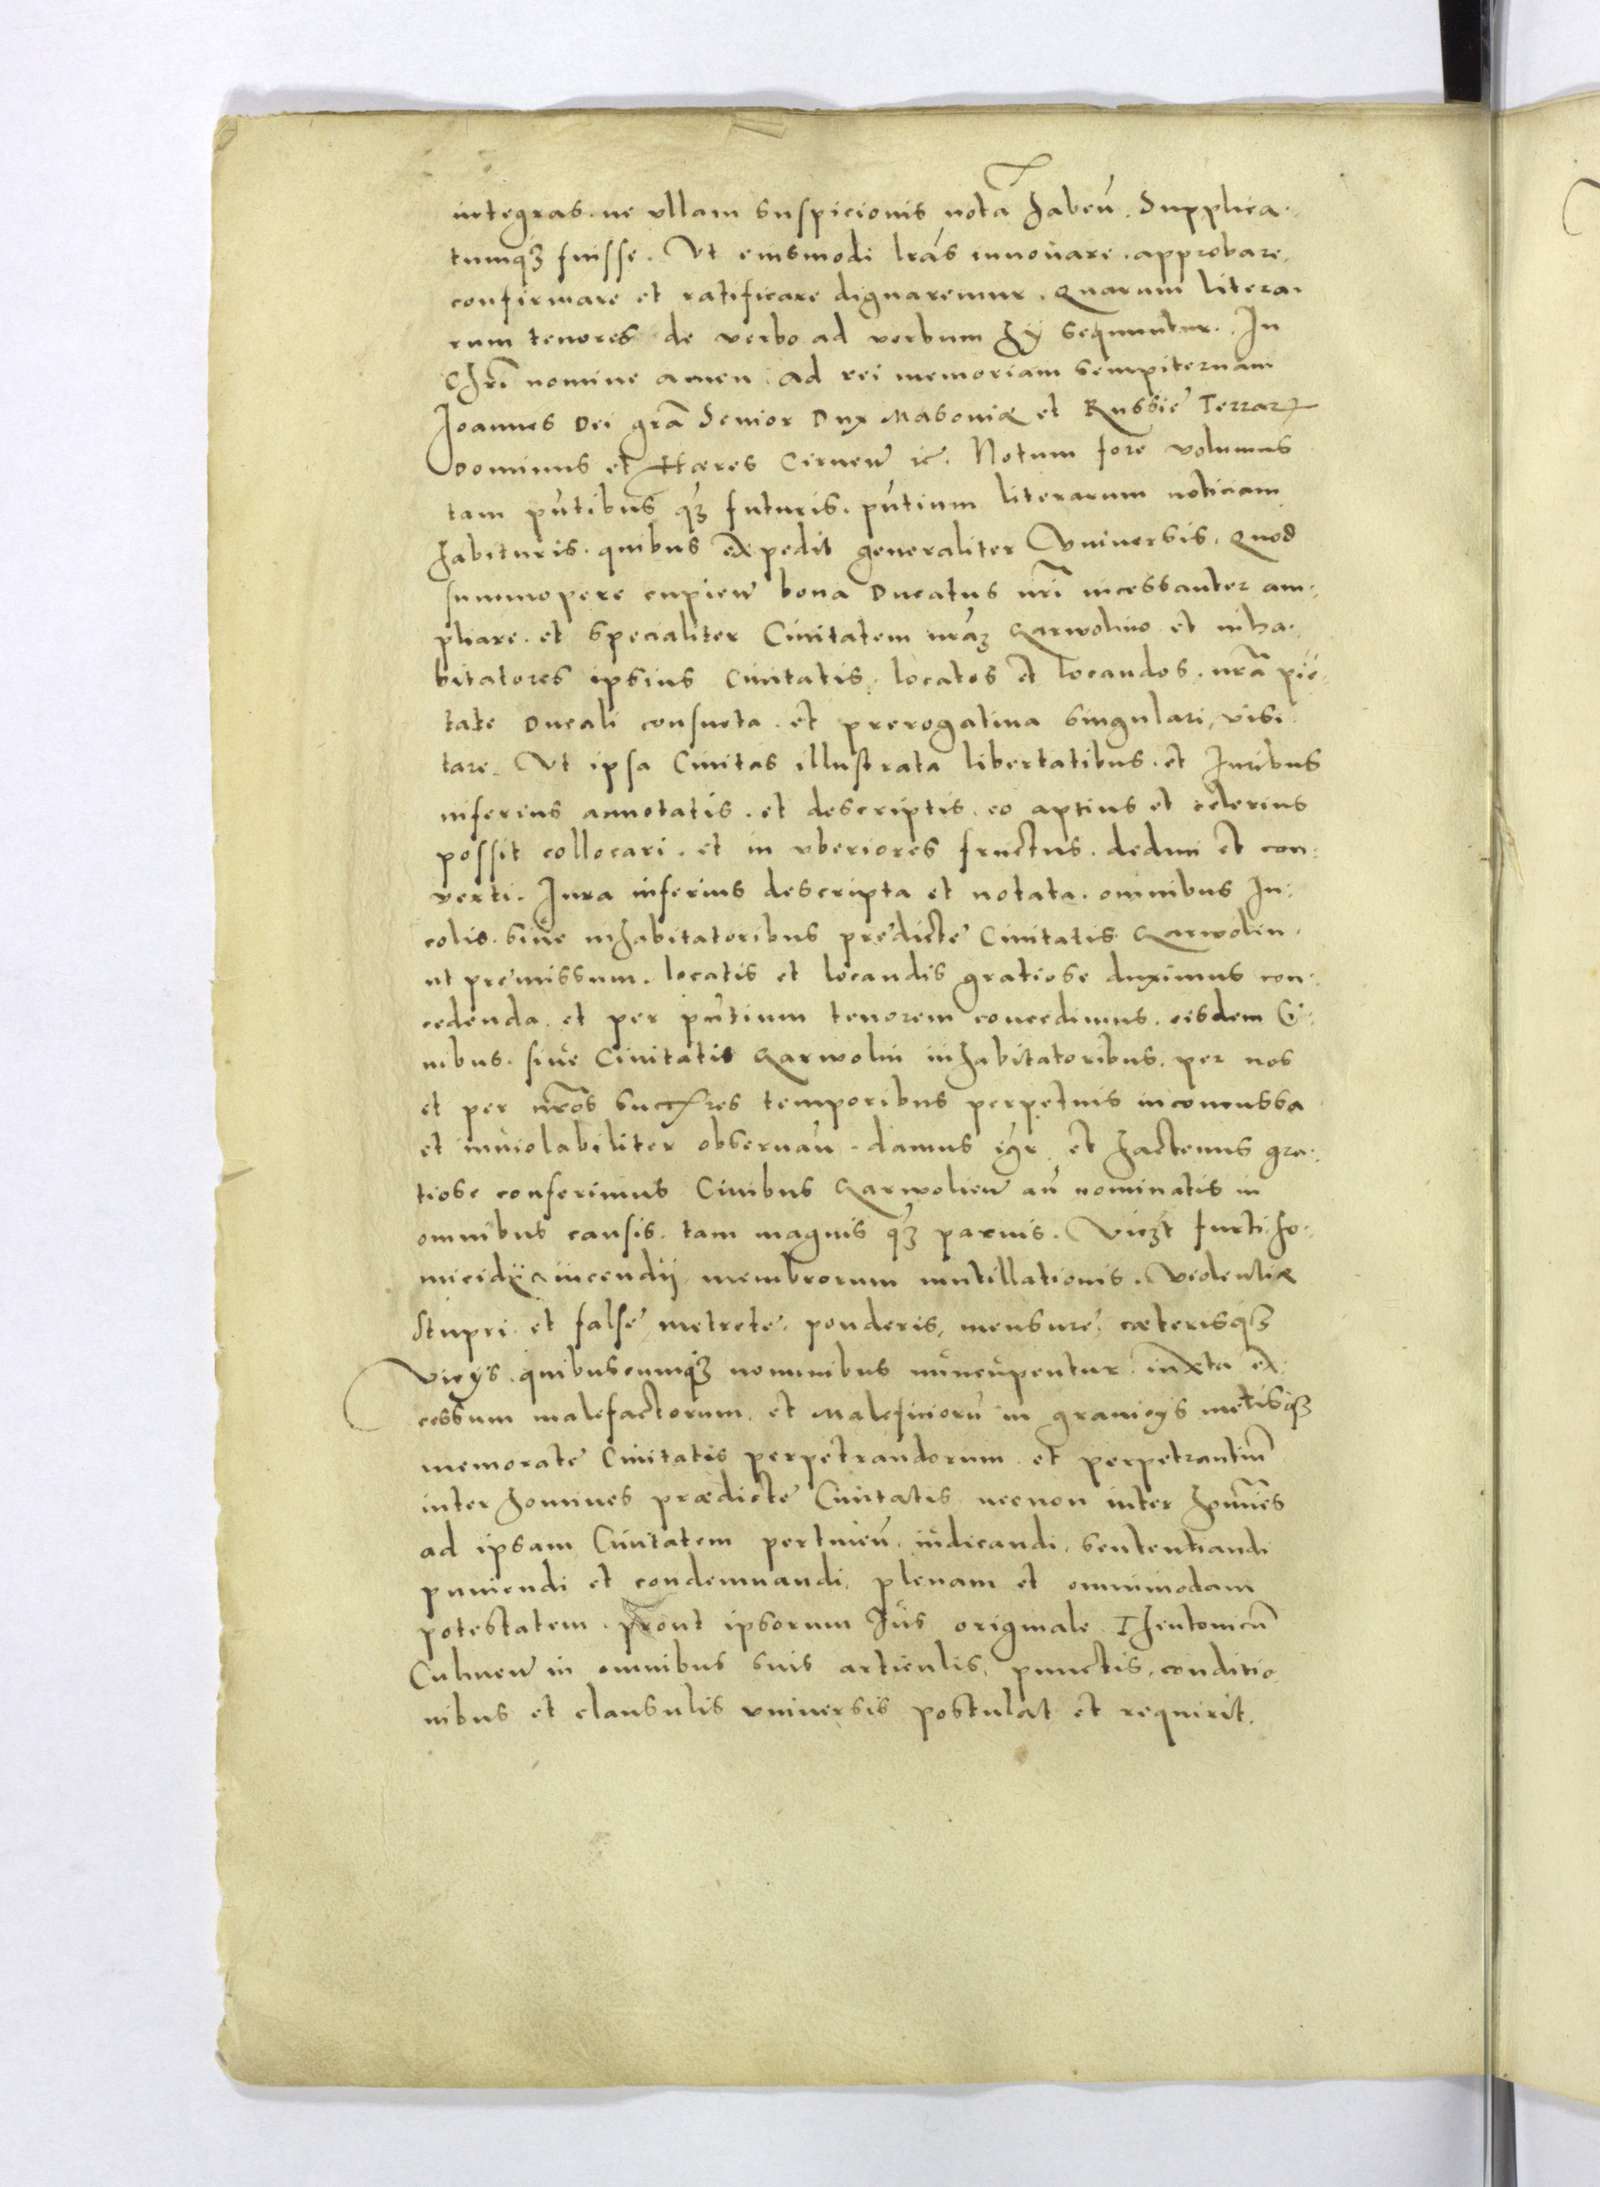 integras. ne vllam suspicionis notã habeñ. Supplica-
tumq3 fuisse. Vt eiusmodi lrãs innovare. approbare,
confirmare et ratificare dignaremur. Quarum litera-
rum tenores de verbo ad verbum hÿ sequuntur. In
Chrĩ nomine amen. ad rei memoriam sempiternam
Joannes Dei grã Senior Dux Masoviæ et Russie Terrar
Dominus et Hæres Cirnen̄ ꝛc. Notum fore volumus
tam pñtibus q3 futuris. pñtium literarum noticiam
habituris. quibus expedit generaliter Vniversis. Quod
summopere cupien̄ bona Ducatus nrĩ incessanter am-
pliare. et specialiter Civitatem nrã3 Garwolino et inha-
bitatores ipsius Civitatis. locatos et locandos. nrã pie-
tate Ducali consueta. et prerogativa singulari, visi
tare. Vt ipsa Civitas illustrata libertatibus. et Juribus
inferius annotatis. et descriptis. eo aptius et celerius
possit collocari. et in vberiores fructus. deduci et con-
verti. Jura inferius descripta et notata. omnibus In-
colis. sive inhabitatoribus predicte Civitatis Garwolin.
ut premissum. locatis et locandis gratiose duximus con-
cedenda. et per pñtium tenorem concedimus. eisdem Ci-
vibus. sive Civitatis Garwolin inhabitatoribus. per nos
et per nrõs succres temporibus perpetuis inconcussa
et inviolabiliter observañ. damus igr et hactenus gra-
tiose conferimus Civibus Garwolien̄ añ nominatis in
omnibus causis. tam magnis q3 parvis. Vic3t furti ho-
micidÿ incendij membrorum mutillationis. Violentiæ
Stupri et false metrete. ponderis, mensure. cæterisq3
Vicÿs. quibuscumq3 nominibus nuncupentur. iuxta ex-
cessum malefactorum. et Maleficiorũ in granicÿs metisq3
memorate Civitatis perpetrandorum et perpetrantiũ
inter homines prædicte Civitatis necnon inter homnes
ad ipsam Civitatem pertineñ. iudicandi. sententiandi
puniendi et condemnandi. plenam et omnimodam
potestatem. prout ipsorum Jus originale Theutonicũ
Culmen̄ in omnibus suis articulis, punctis, conditio
nibus et clausulis vniversis postulat et requirit.